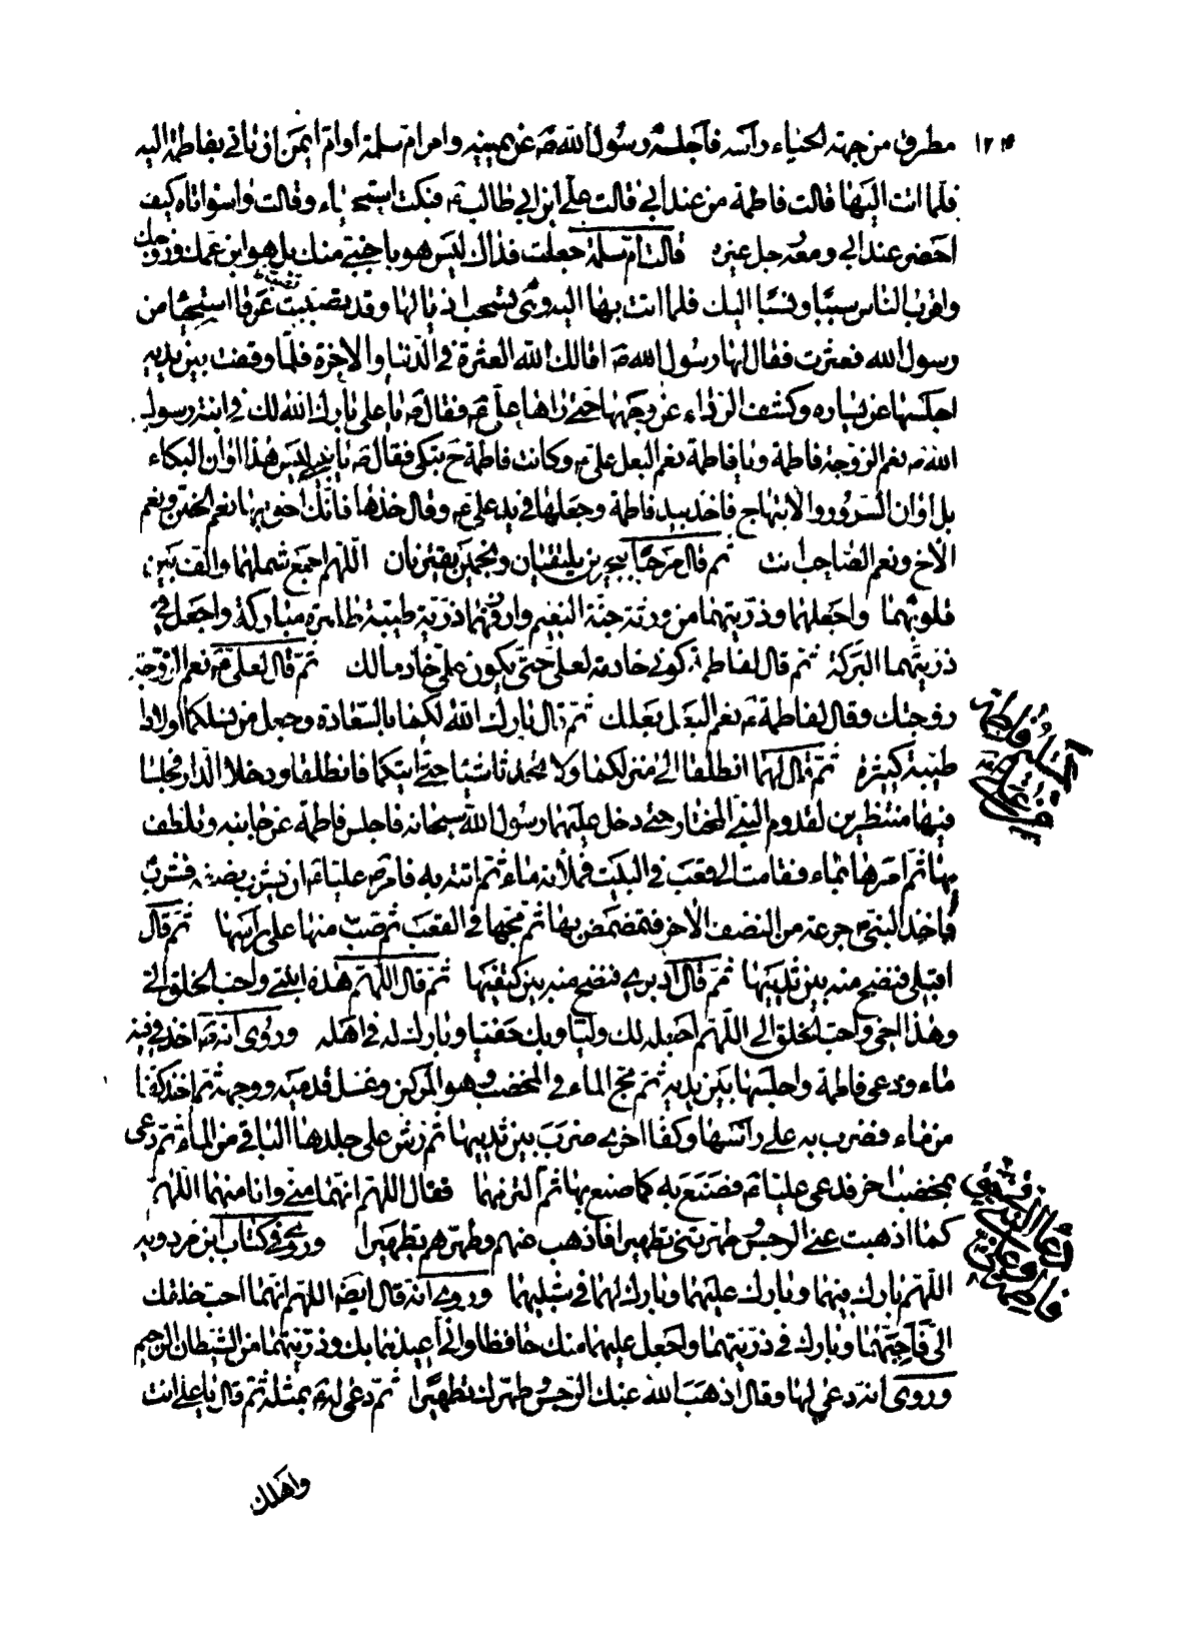 ١٢٤ مطرق من جهة الحياء رأسه فأجلسه رسول الله ص عن يمينه وامر ام سلمة او ام ايمن ان تاتي بفاطمة اليه
فلما اتت اليها قالت فاطمة من عند أبي قالت علي ابن ابي طالب ع فبكت استحياء وقالت واسواتاه كيف
احضر عند ابي ومعه رجل غيره قالت ام سلمة جعلت فداك ليس هو باجنبي منك بل هو ابن عمك وزوجك
واقرب الناس سببا ونسبا اليك فلما اتت بها اليه وهي تسحب اذيالها وقد تصببت عرقا استحياء من
رسول الله فعثرت فقال لها رسول الله ص اقالك الله العثرة في الدنيا والآخرة فلما وقفت بين يديه
اجلسها عن يساره وكشف الرداء عن وجهها حتى راها علي ع فقال ص يا علي بارك الله لك في ابنة رسول
الله ص نعم الزوجة فاطمة ويا فاطمة نعم البعل علي ع وكانت فاطمة ع تبكي فقال ص ليس هذا اوان البكاء
بل اوان السرور والابتهاج فاخذ بيد فاطمة وجعلها في يد علي ع وقال خذها فانك احق بها نعم الختن ونعم
الاخ ونعم الصاحب انت ثم قال مرحبا ببحرين يلتقيان ونجمين يقترنان اللهم اجمع شملهما والف بين
قلوبهما واجعلهما وذريتهما من ورثة جنة النعيم وارزقهما ذرية طيبة طاهرة مباركة واجعل في
ذريتهما البركة ثم قال لفاطمة كوني خادمة لعلي حتى يكون علي خادما لك ثم قال لعلي ع نعم الزوجة
زوجتك وقال لفاطمة ع نعم البعل بعلك ثم قال بارك الله لكما بالسعادة وجعل من نسلكما اولادا
طيبة كثيرة ثم قال لهما انطلقا الى منزلكما ولا تحدثا شيئا حتى اتيكما فانطلقا ودخلا الدار فجلسا
فيها منتظرين لقدوم النبي المختار حتى دخل عليهما رسول الله سبحانه فاجلس فاطمة عن جانبه وتلطف
بها ثم امرها بماء فقامت الى قعب في البيت فملأته ماء ثم اتته به فامر ص عليا ع ان يشرب نصفه فشرب
فاخذ النبي ص جرعة من النصف الاخر فتمضمض بها ثم مجها في القعب ثم صب منها على راسها ثم قال
اقبلي فنضح منه بين ثدييها ثم قال ادبري فنضح منه بين كتفيها ثم قال اللهم هذه ابنتي واحب الخلق الي
وهذا اخي واحب الخلق الي اللهم اجعله لك وليا وبك حفيا وبارك له في اهله وروى انه ص اخذ في فيه
ماء ودعى فاطمة واجلسها بين يديه ثم مج الماء في المخضب وهو المركن وغسل قدميه ووجهه ثم اخذ كفا
من ماء فضرب به على رأسها وكفا اخرى ضرب بين ثدييها ثم رش على جلدها الباقي من الماء ثم دعى
بمخضب اخر فدعى عليا ع فصنع به كما صنع بها ثم التزمهما فقال اللهم انهما مني وانا منهما اللهم
كما اذهبت عني الرجس وطهرتني تطهيرا فأذهب عنهم وطهرهم تطهيرا وروى في كتاب ابن مردويه
اللهم بارك فيهما وبارك عليهما وبارك لهما في شبليهما وروى انه قال ايضا اللهم انهما احب خلقك
الي فاحبهما وبارك في ذريتهما واجعل عليهما منك حافظا واني أعيذهما بك وذريتهما من الشيطان الرجيم
وروى انه دعى لها وقال اذهب الله عنك الرجس وطهرك تطهيرا ثم دعى له ع بمثله ثم قال يا علي انت
واهلك